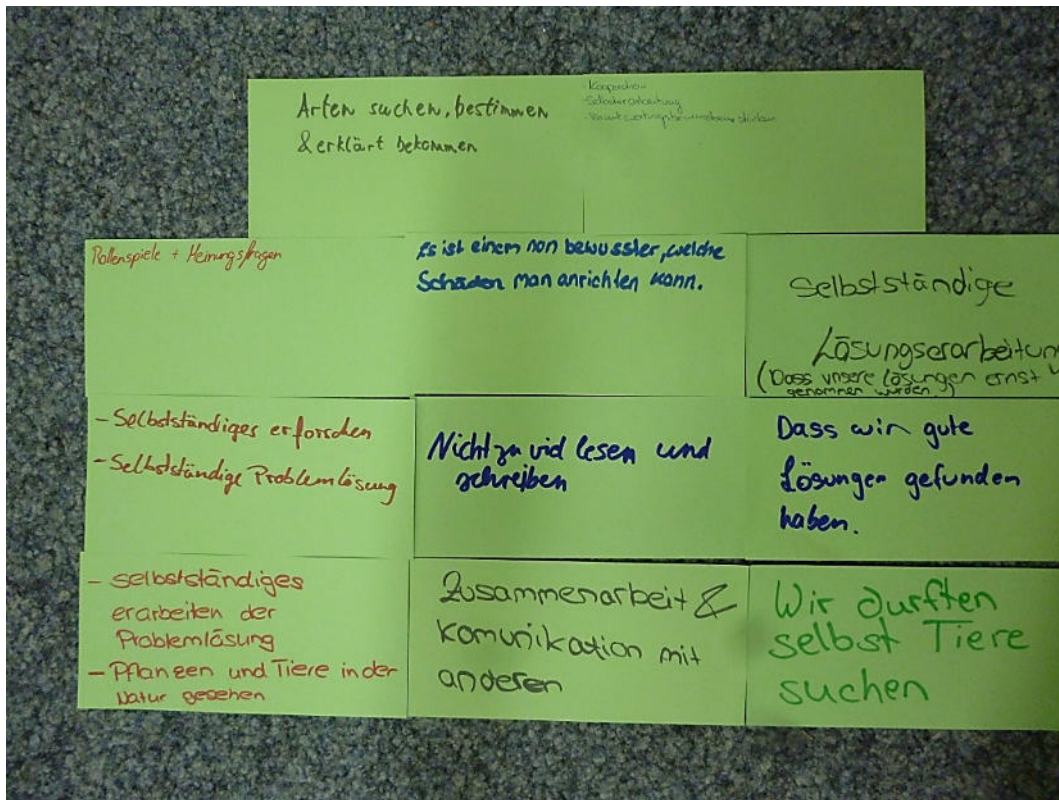 Arten suchen, bestimmen
& erklärt bekommen
- Kooperation
- Selbsterarbeitung
Rollenspiele + Meinungsfragen
Es ist einem nun bewusster, welche
Schäden man anrichten kann.
Selbstständige
Lösungserarbeitun
(Dass unsere Lösungen ernst
genommen wurden)
- Selbstständiges erforschen
- Selbstständige Problemlösung
Nicht zu viel lesen und
schreiben
Dass wir gute
Lösungen gefunden
haben.
- selbstständiges
erarbeiten der
Problemlösung
- Pflanzen und Tiere in der
Natur gesehen
Zusammenarbeit &
Komunikation mit
anderen
Wir durften
selbst Tiere
suchen